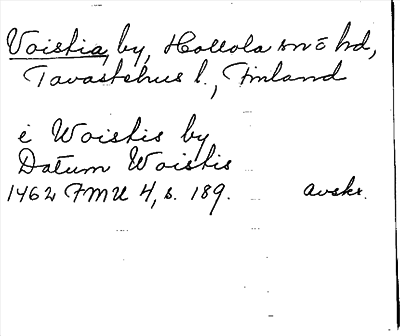 Voistia, by, Hollola sn o hd,
Tavastehus l., Finland
i Woistis by
Datum Woistis
1462 FMU 4, s. 189. Avskr.